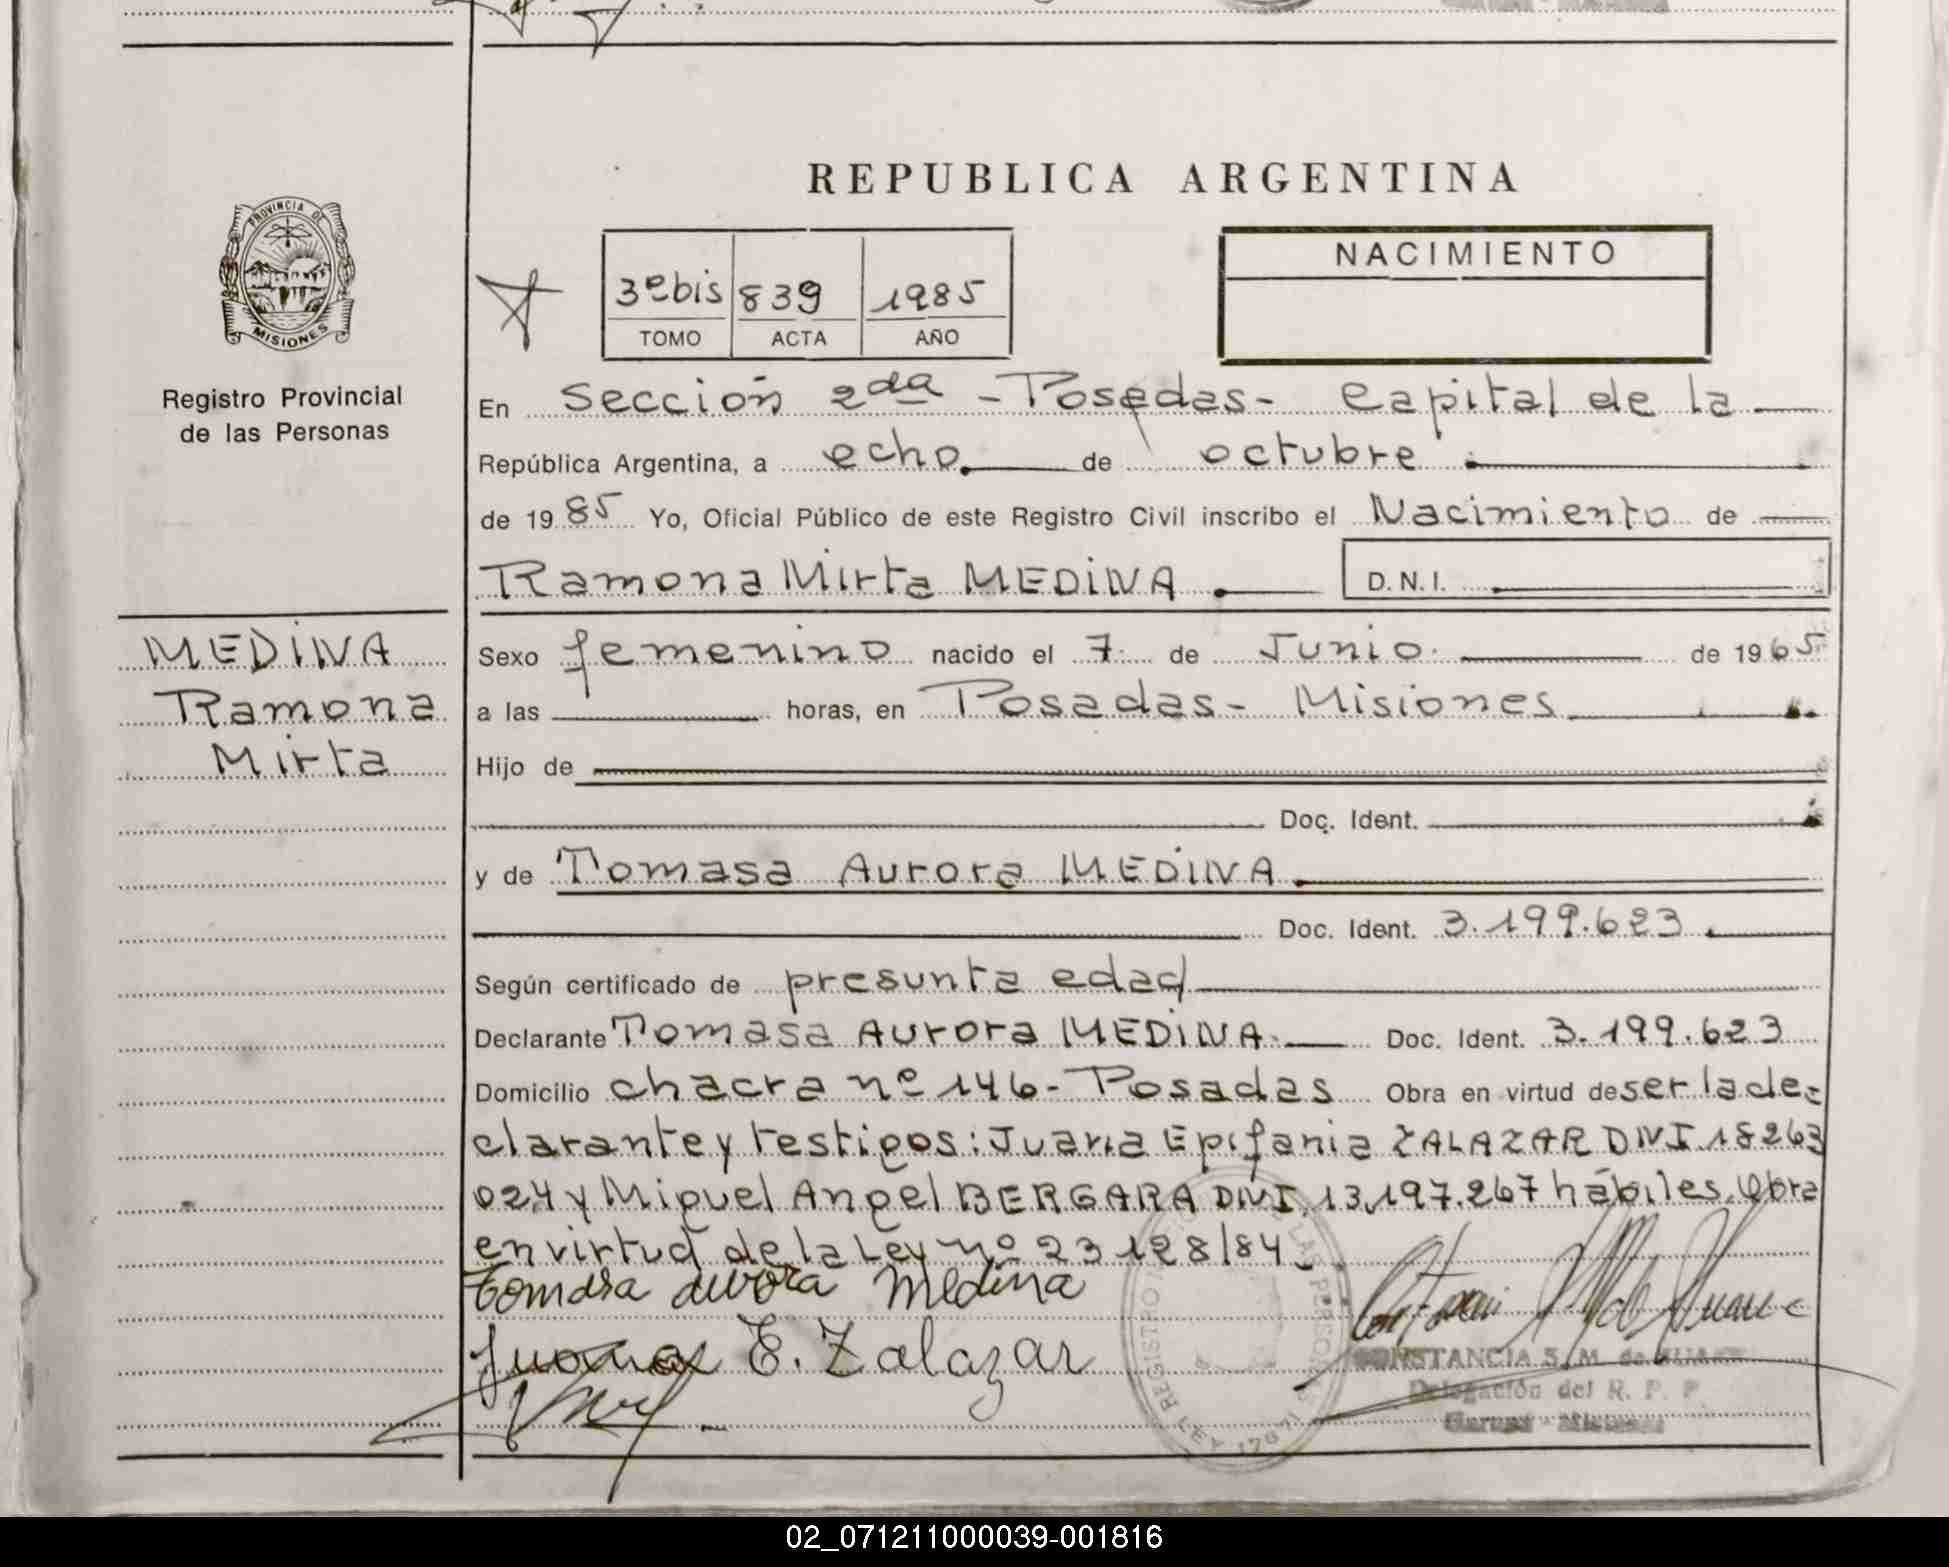 REPUBLICA ARGENTINA
PROVINCIA DE
MISIONES
Registro Provincial
de las Personas
3º bis 839 1985
TOMO ACTA AÑO
NACIMIENTO
En Sección 2da - Posadas - Capital de la
República Argentina, a ocho de octubre
de 1985 Yo, Oficial Público de este Registro Civil inscribo el Nacimiento de
Ramona Mirta MEDINA. D.N.I.
MEDINA
Ramona
Mirta
Sexo femenino nacido el 7 de Junio de 1965
a las horas, en Posadas - Misiones
Hijo de
Doc. Ident.
y de Tomasa Aurora MEDINA
Doc. Ident. 3.199.623
Según certificado de presunta edad
Declarante Tomasa Aurora MEDINA. Doc. Ident. 3.199.623
Domicilio chacra nº 146 - Posadas Obra en virtud de ser la de-
clarante y testigos: Juana Epifania ZALAZAR DNI 18263
024 y Miguel Angel BERGARA DNI. 13.197.267 hábiles. Obra
en virtud de la Ley nº 23128/84.
Tomasa Aurora Medina
Juana E. Zalazar
CONSTANCIA S. M. de
Delegación del R. P. P.
02_071211000039-001816